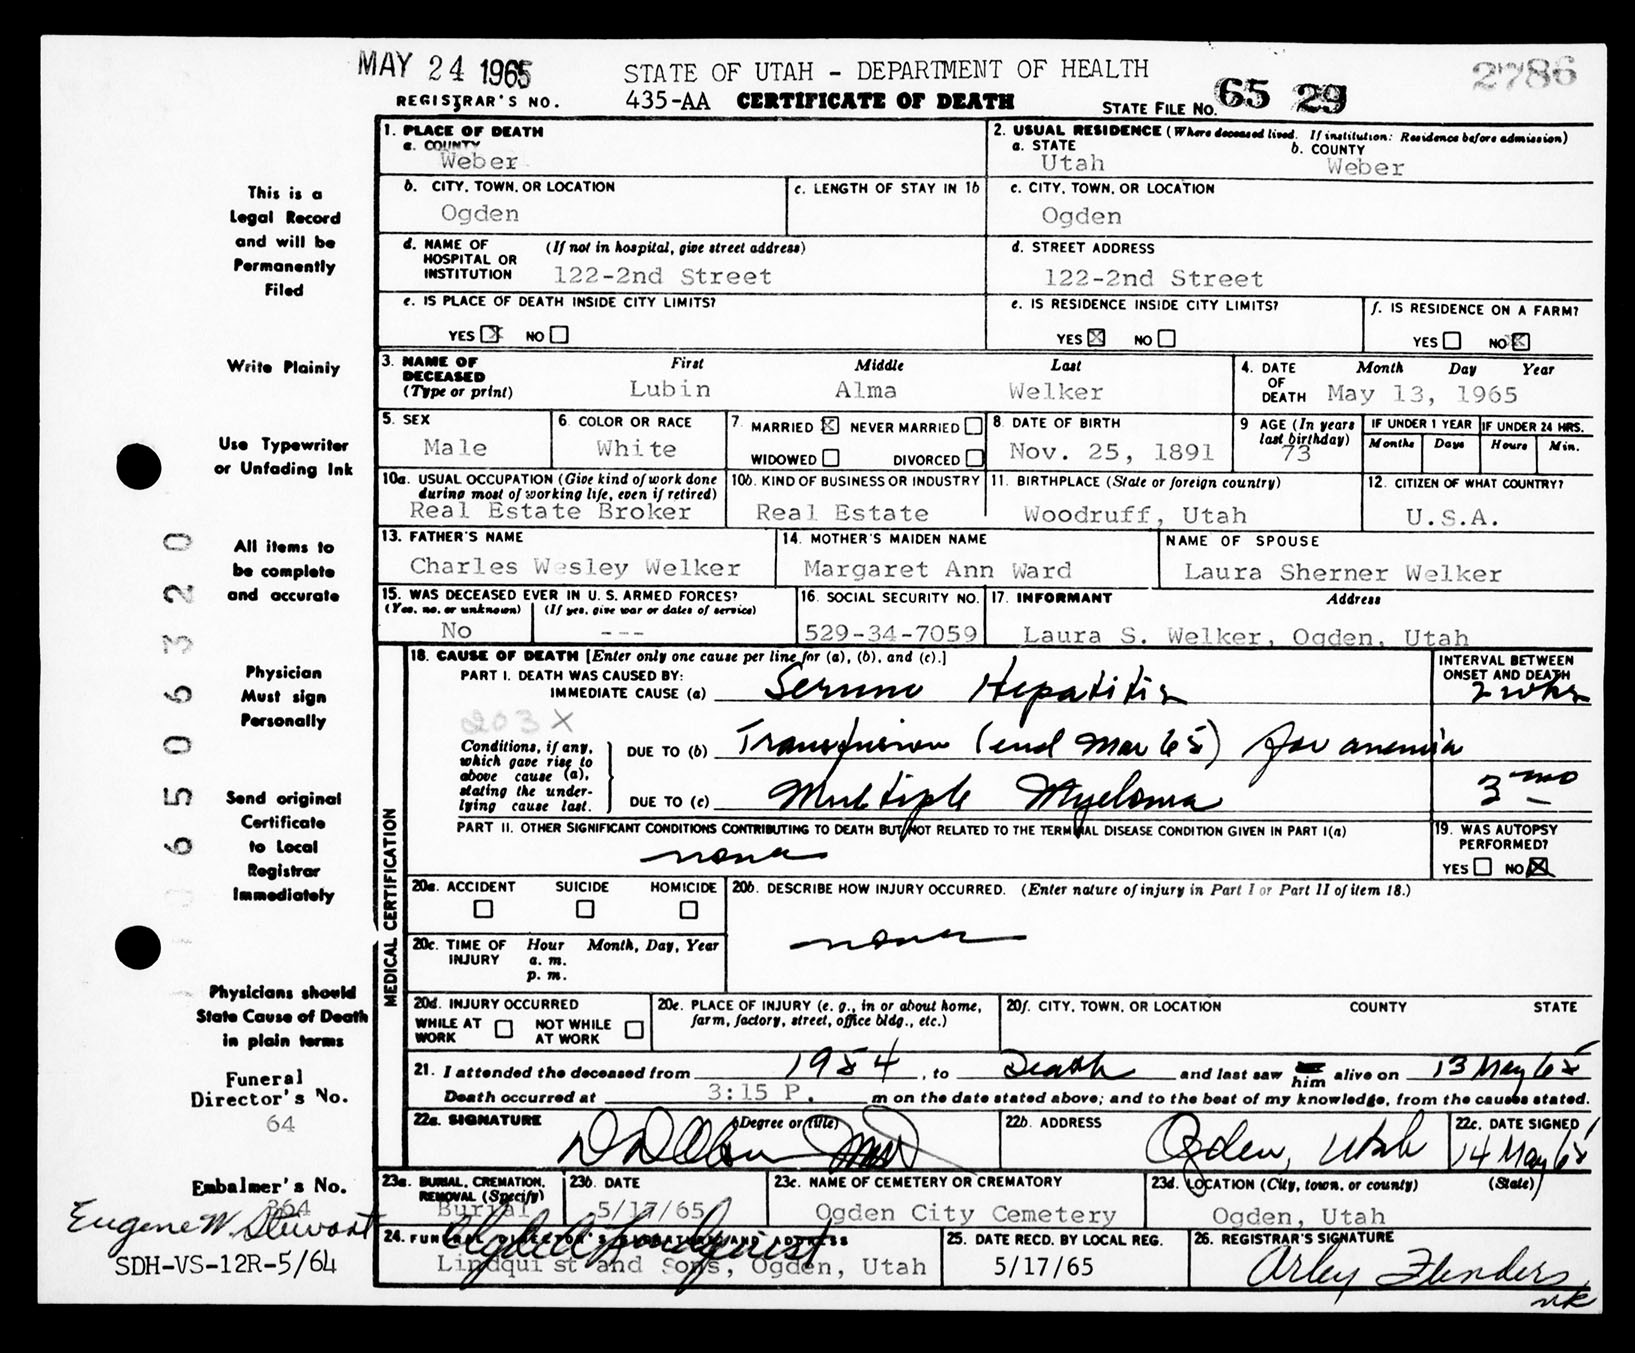 MAY 24 1965
STATE OF UTAH - DEPARTMENT OF HEALTH
2786
REGISTRAR'S NO. 435-AA CERTIFICATE OF DEATH STATE FILE NO. 65 29
This is a
Legal Record
and will be
Permanently
Filed
Write Plainly
Use Typewriter
or Unfading Ink
All items to
be complete
and accurate
Physician
Must sign
Personally
Send original
Certificate
to Local
Registrar
Immediately
Physicians should
State Cause of Death
in plain terms
Funeral
Director's No.
64
Embalmer's No.
364
Eugene W. Stewart
SDH-VS-12R-5/64
6506320
1. PLACE OF DEATH
a. COUNTY
Weber
2. USUAL RESIDENCE (Where deceased lived. If institution: Residence before admission)
a. STATE b. COUNTY
Utah Weber
b. CITY, TOWN, OR LOCATION
Ogden
c. LENGTH OF STAY IN 1b
c. CITY, TOWN, OR LOCATION
Ogden
d. NAME OF HOSPITAL OR INSTITUTION (If not in hospital, give street address)
122-2nd Street
d. STREET ADDRESS
122-2nd Street
e. IS PLACE OF DEATH INSIDE CITY LIMITS?
YES X NO
e. IS RESIDENCE INSIDE CITY LIMITS?
YES X NO
f. IS RESIDENCE ON A FARM?
YES NO X
3. NAME OF DECEASED (Type or print) First Middle Last
Lubin Alma Welker
4. DATE OF DEATH Month Day Year
May 13, 1965
5. SEX
Male
6. COLOR OR RACE
White
7. MARRIED X NEVER MARRIED
WIDOWED DIVORCED
8. DATE OF BIRTH
Nov. 25, 1891
9 AGE (In years last birthday)
73
IF UNDER 1 YEAR
Months Days
IF UNDER 24 HRS.
Hours Min.
10a. USUAL OCCUPATION (Give kind of work done during most of working life, even if retired)
Real Estate Broker
10b. KIND OF BUSINESS OR INDUSTRY
Real Estate
11. BIRTHPLACE (State or foreign country)
Woodruff, Utah
12. CITIZEN OF WHAT COUNTRY?
U.S.A.
13. FATHER'S NAME
Charles Wesley Welker
14. MOTHER'S MAIDEN NAME
Margaret Ann Ward
NAME OF SPOUSE
Laura Sherner Welker
15. WAS DECEASED EVER IN U. S. ARMED FORCES?
(Yes, no, or unknown) (If yes, give war or dates of service)
No ---
16. SOCIAL SECURITY NO.
529-34-7059
17. INFORMANT Address
Laura S. Welker, Ogden, Utah
MEDICAL CERTIFICATION
18. CAUSE OF DEATH [Enter only one cause per line for (a), (b), and (c).]
INTERVAL BETWEEN ONSET AND DEATH
PART I. DEATH WAS CAUSED BY:
IMMEDIATE CAUSE (a) Serum Hepatitis 2 wks
203 X
Conditions, if any, which gave rise to above cause (a), stating the underlying cause last.
DUE TO (b) Transfusion (end Mar 65) for anemia
DUE TO (c) Multiple Myeloma 3 mo
PART II. OTHER SIGNIFICANT CONDITIONS CONTRIBUTING TO DEATH BUT NOT RELATED TO THE TERMINAL DISEASE CONDITION GIVEN IN PART I(a)
none
19. WAS AUTOPSY PERFORMED?
YES NO X
20a. ACCIDENT SUICIDE HOMICIDE
20b. DESCRIBE HOW INJURY OCCURRED. (Enter nature of injury in Part I or Part II of item 18.)
none
20c. TIME OF INJURY Hour Month, Day, Year
a. m.
p. m.
20d. INJURY OCCURRED
WHILE AT WORK NOT WHILE AT WORK
20e. PLACE OF INJURY (e. g., in or about home, farm, factory, street, office bldg., etc.)
20f. CITY, TOWN, OR LOCATION COUNTY STATE
21. I attended the deceased from 1954, to Death and last saw him alive on 13 May 65
Death occurred at 3:15 P. m on the date stated above; and to the best of my knowledge, from the causes stated.
22a. SIGNATURE (Degree or title)
22b. ADDRESS
Ogden, Utah
22c. DATE SIGNED
14 May 65
23a. BURIAL, CREMATION, REMOVAL (Specify)
Burial
23b. DATE
5/17/65
23c. NAME OF CEMETERY OR CREMATORY
Ogden City Cemetery
23d. LOCATION (City, town, or county) (State)
Ogden, Utah
24. FUNERAL DIRECTOR'S SIGNATURE AND ADDRESS
Lindquist and Sons, Ogden, Utah
25. DATE RECD. BY LOCAL REG.
5/17/65
26. REGISTRAR'S SIGNATURE
Arley Flinders
nk